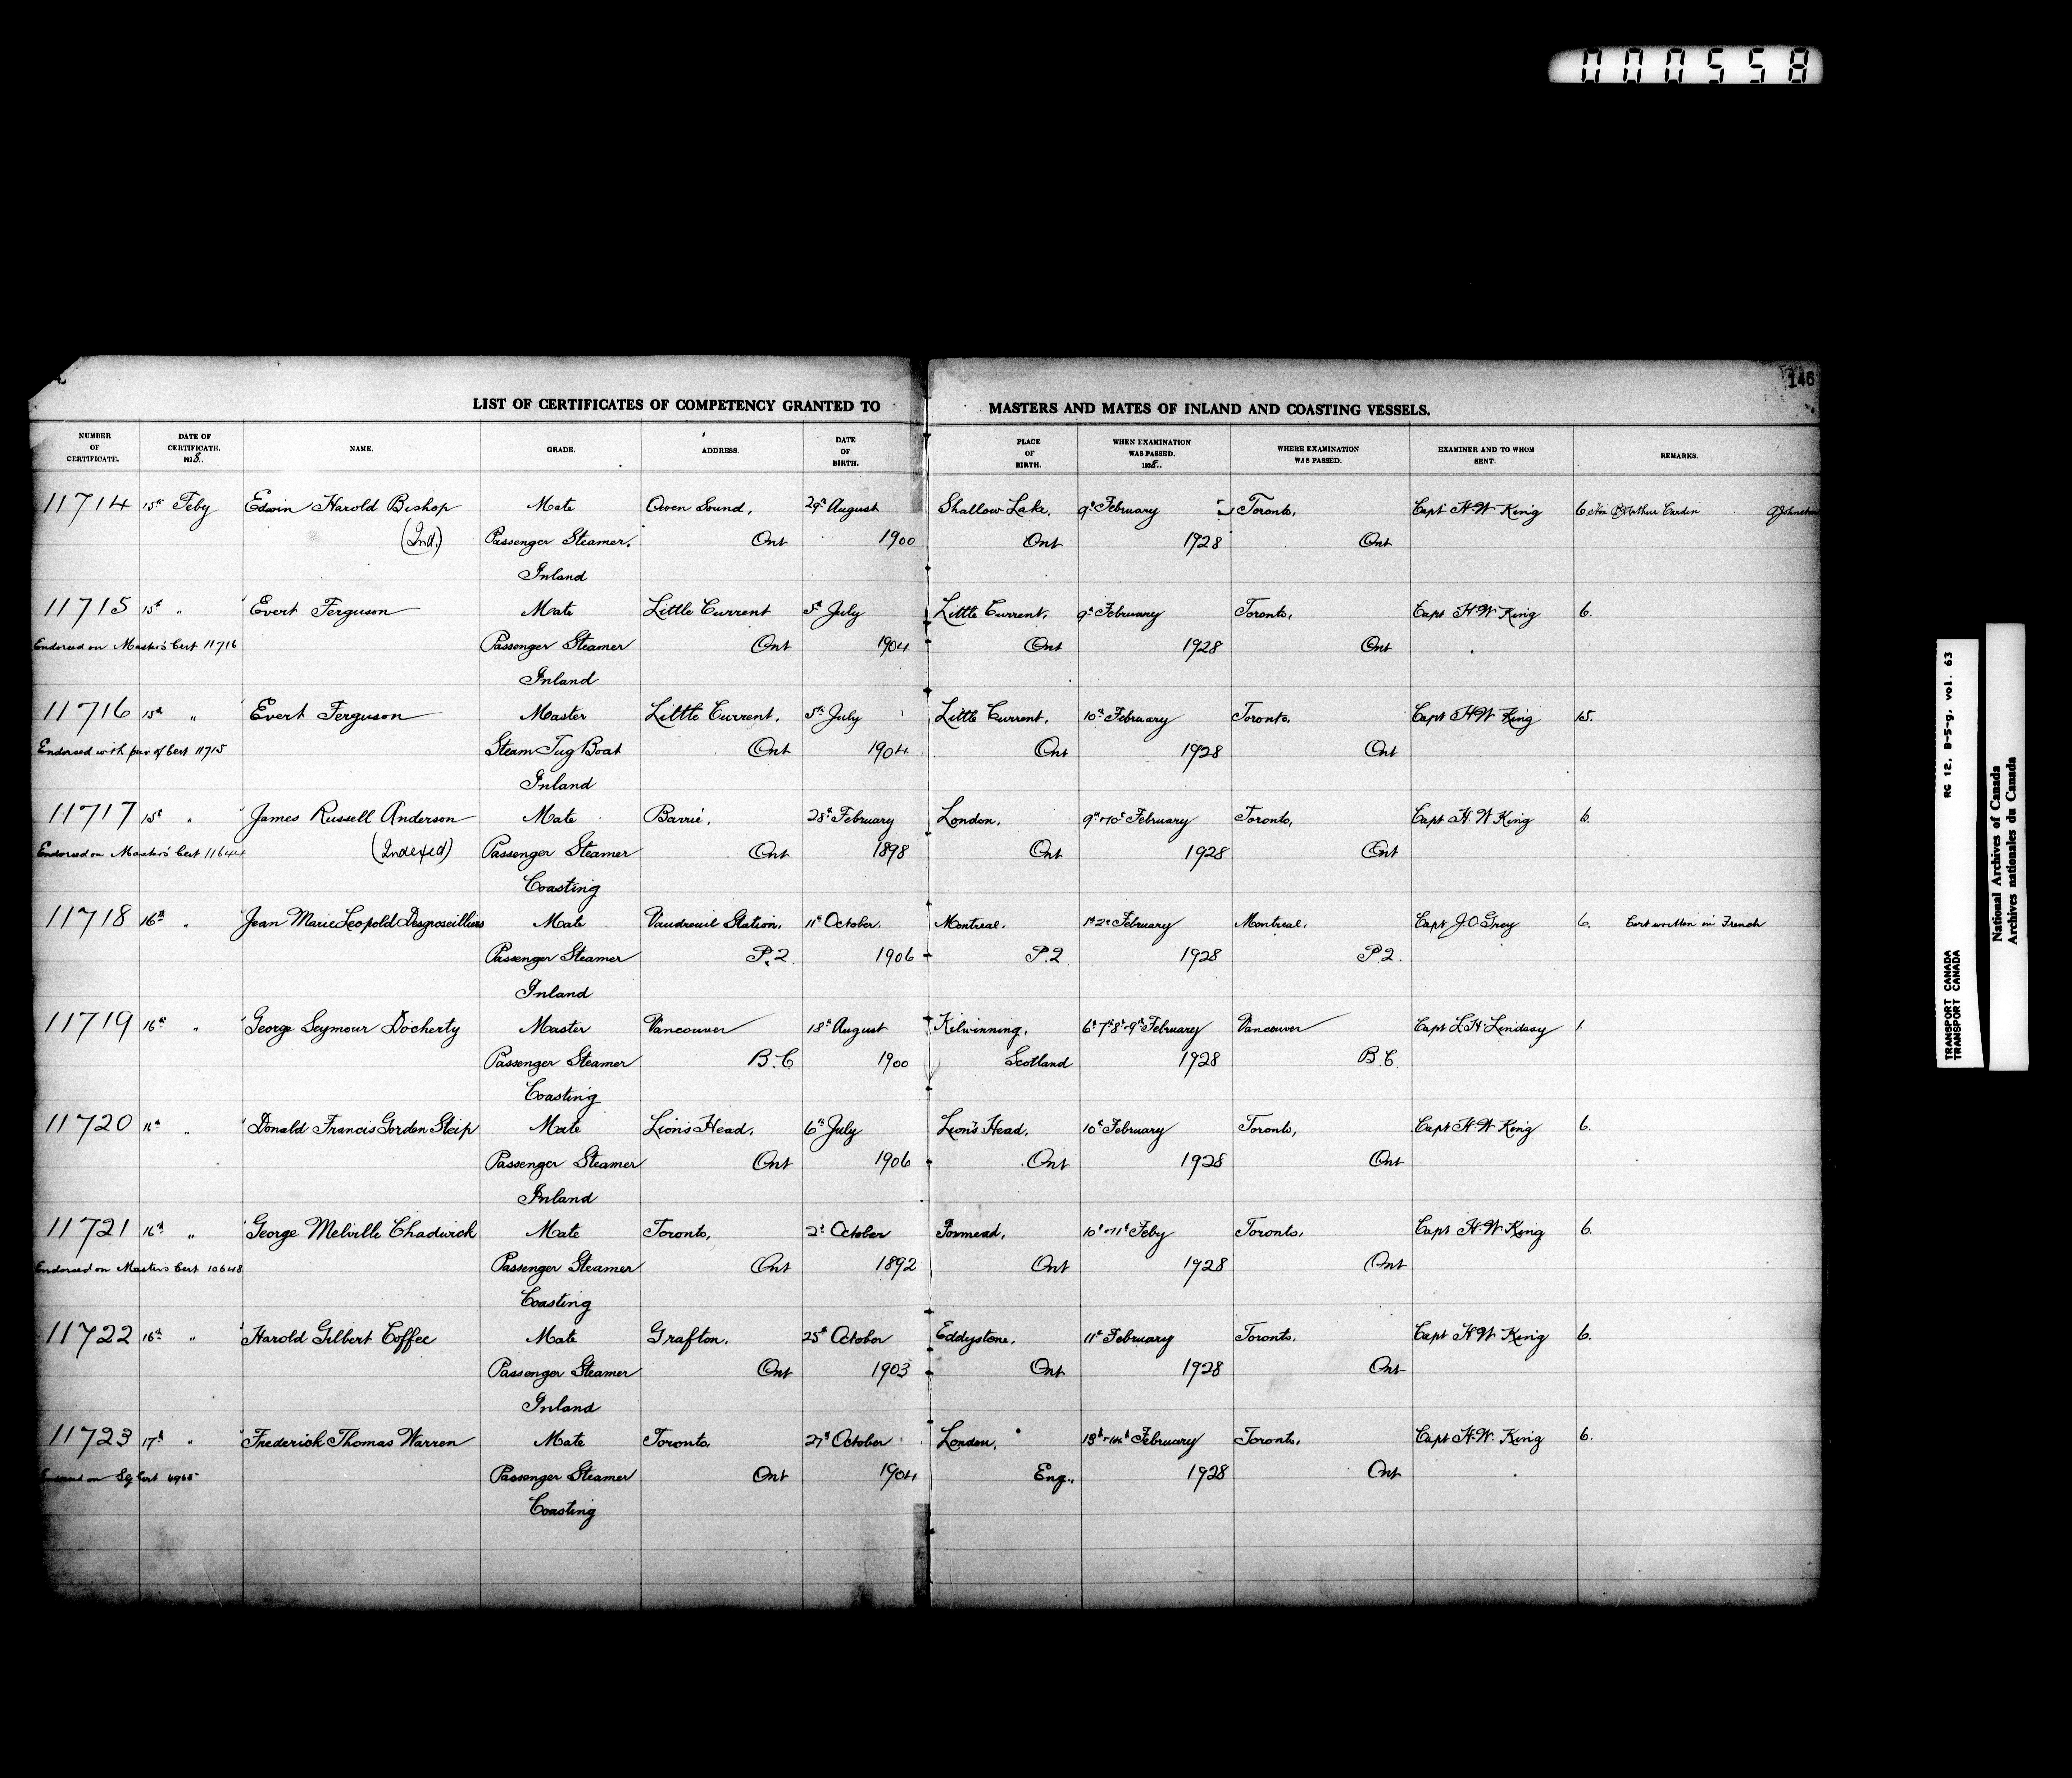 000558
146
LIST OF CERTIFICATES OF COMPETENCY GRANTED TO MASTERS AND MATES OF INLAND AND COASTING VESSELS.
NUMBER OF CERTIFICATE. DATE OF CERTIFICATE. 1928.. NAME. GRADE. ADDRESS. DATE OF BIRTH. PLACE OF BIRTH. WHEN EXAMINATION WAS PASSED. 1928.. WHERE EXAMINATION WAS PASSED. EXAMINER AND TO WHOM SENT. REMARKS.
11714 15th Feby Edwin Harold Bishop Mate Owen Sound, 29th August Shallow Lake, 9th February Toronto, Capt H.W King 6 Hon Arthur Cardin AJohnston
(Ind.) Passenger Steamer, Ont 1900 Ont 1928 Ont
Inland
11715 15th " Evert Ferguson Mate Little Current 5th July Little Current, 9th February Toronto, Capt H.W King 6.
Endorsed on Master's Cert 11716 Passenger Steamer Ont 1904 Ont 1928 Ont
Inland
11716 15th " Evert Ferguson Master Little Current, 5th July Little Current, 10th February Toronto, Capt H.W King 15.
Endorsed with par of Cert 11715 Steam Tug Boat Ont 1904 Ont 1928 Ont
Inland
11717 15th " James Russell Anderson Mate Barrie, 28th February London, 9th & 10th February Toronto, Capt H.W King 6.
Endorsed on Master's Cert 11644 (Indexed) Passenger Steamer Ont 1898 Ont 1928 Ont
Coasting
11718 16th " Jean Marie Leopold Desgroseilliers Mate Vaudreuil Station, 11th October, Montreal, 1st 2nd February Montreal, Capt J.O Grey 6. Cert written in French
Passenger Steamer P.Q. 1906 P.Q 1928 P.Q.
Inland
11719 16th " George Seymour Docherty Master Vancouver 18th August Kilwinning, 6th 7th 8th & 9th February Vancouver Capt L.H. Lindsay 1.
Passenger Steamer B.C 1900 Scotland 1928 B.C.
Coasting
11720 16th " Donald Francis Gordon Steip Mate Lion's Head, 6th July Lion's Head, 10th February Toronto, Capt H.W King 6.
Passenger Steamer Ont 1906 Ont 1928 Ont
Inland
11721 16th " George Melville Chadwick Mate Toronto, 2nd October 10th & 11th Feby Toronto, Capt H.W King 6.
Endorsed on Masters Cert 10648 Passenger Steamer Ont 1892 Ont 1928 Ont
Coasting
11722 16th " Harold Gilbert Coffee Mate Grafton, 25th October Eddystone, 11th February Toronto, Capt H.W King 6.
Passenger Steamer Ont 1903 Ont 1928 Ont
Inland
11723 17th " Frederick Thomas Warren Mate Toronto, 27th October London, 13th & 14th February Toronto, Capt H.W. King 6.
on Cert Passenger Steamer Ont 1904 Eng., 1928 Ont
Coasting
RG 12, B-5-g, vol. 63
TRANSPORT CANADA
TRANSPORT CANADA
National Archives of Canada
Archives nationales du Canada